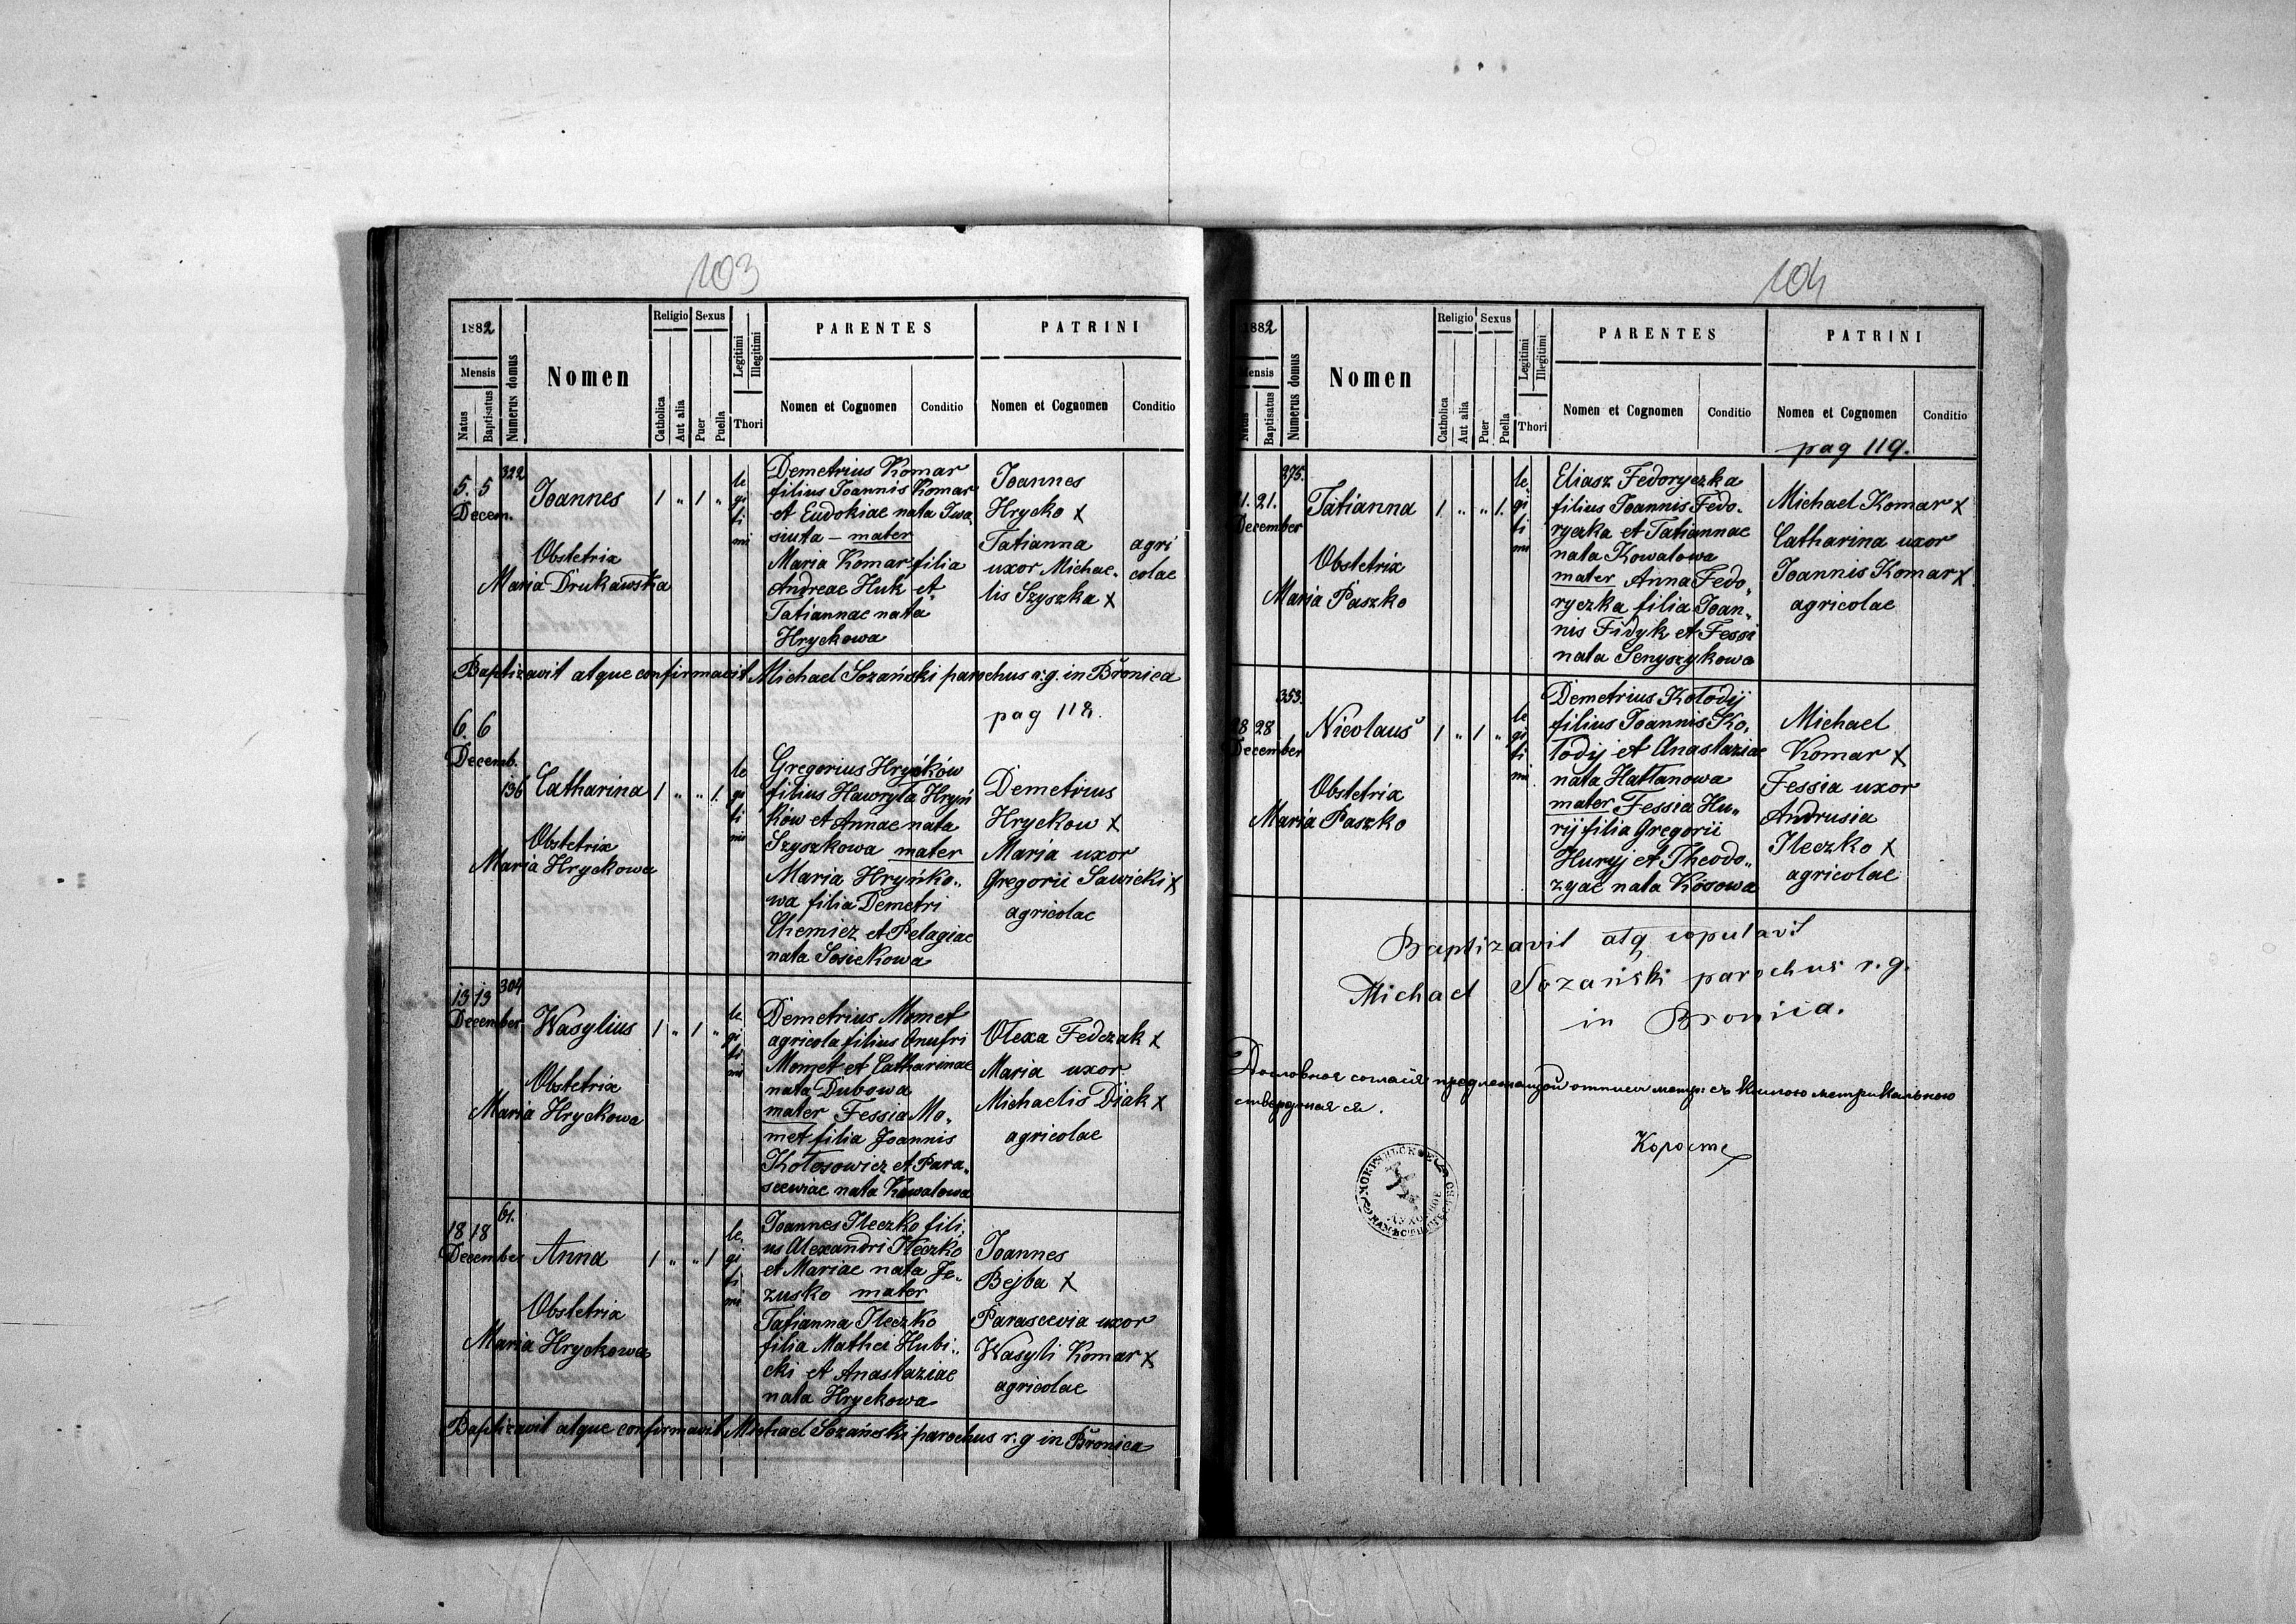 103
1882
Mensis
Natus
Baptisatus
Numerus domus
Nomen
Religio
Catholica
Aut alia
Sexus
Puer
Puella
Legitimi
Illegitimi
Thori
PARENTES
Nomen et Cognomen
Conditio
PATRINI
Nomen et Cognomen
Conditio
5. 5
Decem.
322
Joannes
1 " 1 "
le
gi
ti
mi
Obstetrix
Maria Drukawska
Demetrius Komar
filius Joannis Komar
et Eudokiae nata Iwa„
siuta – mater
Maria Komar filia
Andreae Huk et
Tatiannae nata
Hryckowa
Joannes
Hrycko x
Tatianna
uxor Michae„
lis Szyszka x
agri
colae
Baptizavit atque confirmavit Michael Sozański parochus r. g. in Bronica
pag 118.
6. 6
Decemb.
136
Catharina
1 " " 1.
le
gi
ti
mi
Obstetrix
Maria Hryckowa
Gregorius Hryńków
filius Hawryła Hryń
ków et Annae nata
Szyszkowa mater
Maria Hryńko„
wa filia Demetri
Chemicz et Pelagiae
nata Sosiekowa
Demetrius
Hryckow x
Maria uxor
Gregorii Sawicki x
agricolae
13 13
December
304
Wasylius
1 " 1 "
le
gi
ti
mi
Obstetrix
Maria Hryckowa
Demetrius Momet
agricola filius Onufri
Momet et Catharinae
nata Dubowa
mater Fessia Mo„
met filia Joannis
Kołosowicz et Para„
scewiae nata Kowalowa
Olexa Fedczak x
Maria uxor
Michaelis Diak x
agricolae
18 18
December
61.
Anna
1 " " 1
le
gi
ti
mi
Obstetrix
Maria Hryckowa
Joannes Ileczko fili„
us Alexandri Ileczko
et Mariae nata Je„
zusko mater
Tatianna Ileczko
filia Mathei Hubi„
cki et Anastaziae
nata Hryckowa
Joannes
Bejba x
Parascevia uxor
Wasyli Komar x
agricolae
Baptizavit atque confirmavit Michael Sozański parochus r. g in Bronica
104
1882
Mensis
Natus
Baptisatus
Numerus domus
Nomen
Religio
Catholica
Aut alia
Sexus
Puer
Puella
Legitimi
Illegitimi
Thori
PARENTES
Nomen et Cognomen
Conditio
PATRINI
Nomen et Cognomen
Conditio
pag 119.
21. 21.
December
275.
Tatianna
1. " " 1.
le
gi
ti
mi
Obstetrix
Maria Paszko
Eliasz Fedoryczka
filius Joannis Fedo„
ryczka et Tatiannae
nata Kowalowa
mater Anna Fedo„
ryczka filia Joan„
nis Fidyk et Fessi
nata Senyszykowa
Michael Komar x
Catharina uxor
Joannis Komar x
agricolae
28 28
December
353.
Nicolaus
1 " 1 "
le
gi
ti
mi
Obstetrix
Maria Paszko
Demetrius Kołodij
filius Joannis Ko„
łodij et Anastaziae
nata Hałłanowa
mater Fessia Hu„
rij filia Gregorii
Huryj et Theodo„
zyae nata Kósowa
Michael
Komar x
Fessia uxor
Andrusia
Ileczko x
agricolae
Baptizavit atq copulavit
Michael Sozański parochus r. g.
in Bronica.